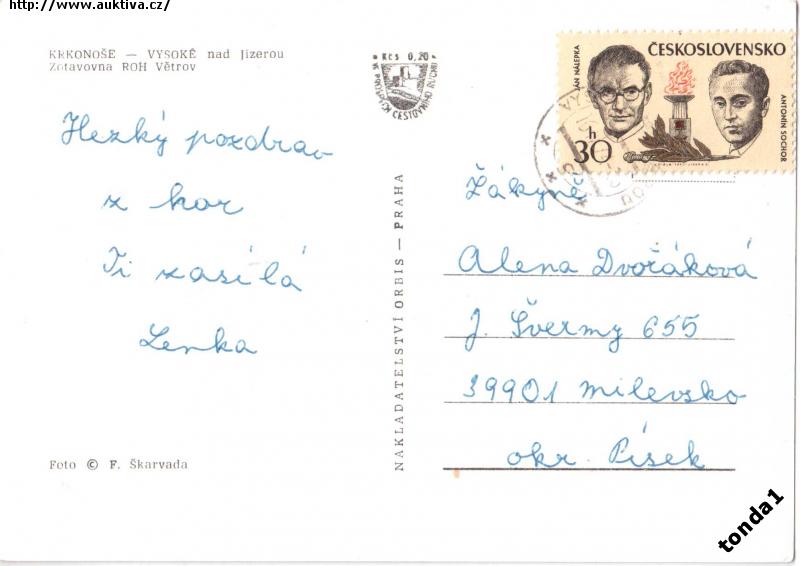 http://www.auktiva.cz/
KRKONOŠE — VYSOKÉ nad Jizerou
Zotavovna ROH Větrov
Kčs 0,20
VE PROSPĚCH CESTOVNÍHO RUCHU
Hezký pozdrav
z hor
Ti zasílá
Lenka
Foto © F. Škarvada
NAKLADATELSTVÍ ORBIS — PRAHA
ČESKOSLOVENSKO
JÁN NÁLEPKA
ANTONÍN SOCHOR
30 h
Žákyně
Alena Dvořáková
J. Švermy 655
39901 Milevsko
okr. Písek
tonda1